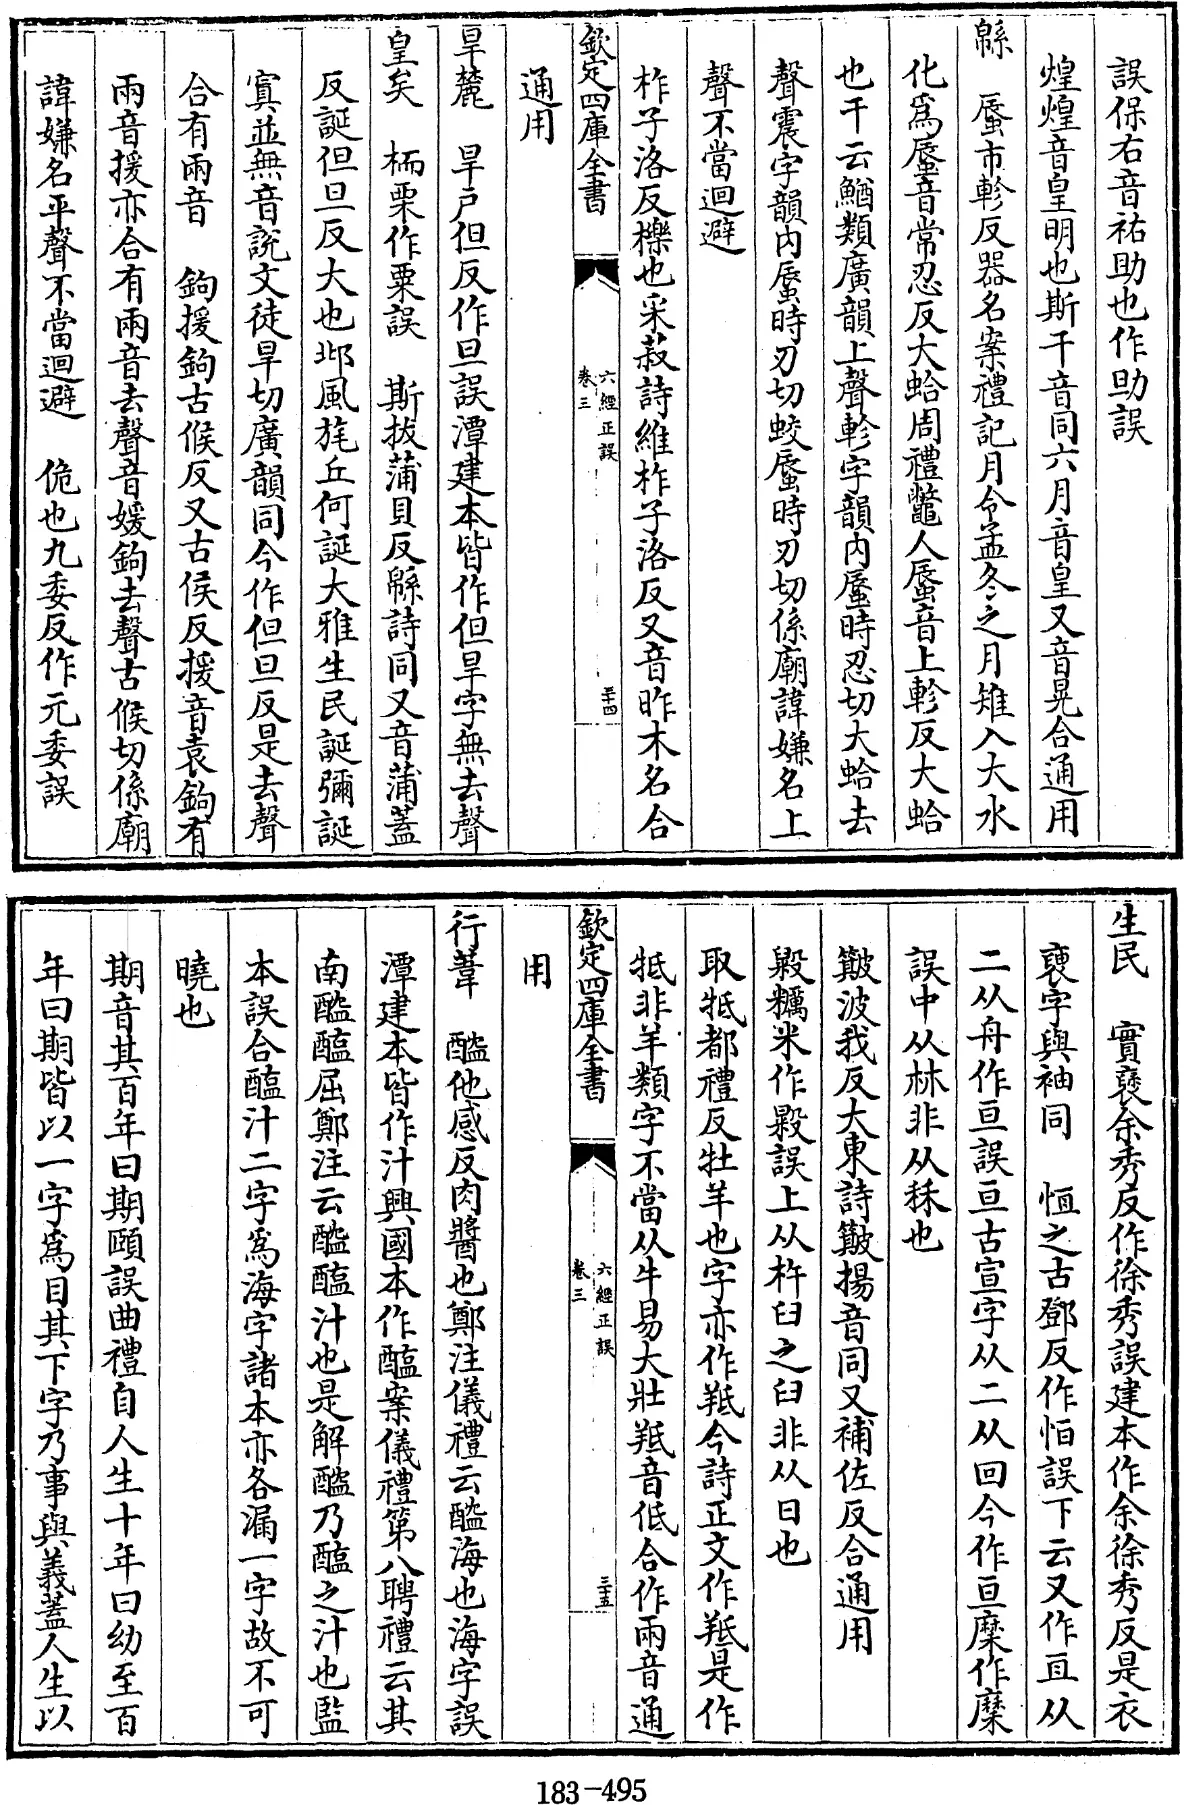 誤保右音祐助也作助誤
煌煌音皇明也斯干音同六月音皇又音晃合通用
緜　蜃市軫反器名案禮記月令孟冬之月雉入大水
化為蜃音常忍反大蛤周禮鼈人蜃音上軫反大蛤
也干云鰌類廣韻上聲軫字韻内蜃時忍切大蛤去
聲震字韻内蜃時刃切蛟蜃時刃切係廟諱嫌名上
聲不當迴避
柞子洛反櫟也采菽詩維柞子洛反又音昨木名合
欽定四庫全書　六經正誤　卷三　三十四
通用
旱麓　旱戶但反作旦誤潭建本皆作但旱字無去聲
皇矣　栭栗作粟誤　斯拔蒲貝反緜詩同又音蒲蓋
反誕但旦反大也邶風旄丘何誕大雅生民誕彌誕
寘並無音説文徒旱切廣韻同今作但旦反是去聲
合有兩音　鉤援鉤古候反又古侯反援音袁鉤有
兩音援亦合有兩音去聲音媛鉤去聲古候切係廟
諱嫌名平聲不當迴避　佹也九委反作元委誤
生民　實襃余秀反作徐秀誤建本作余徐秀反是衣
襃字與袖同　恒之古鄧反作怕誤下云又作亙从
二从舟作亘誤亘古宣字从二从回今作亘穈作糜
誤中从林非从秝也
簸波我反大東詩簸揚音同又補佐反合通用
毇糲米作毇誤上从杵臼之臼非从日也
取羝都禮反牡羊也字亦作羝今詩正文作羝是作
牴非羊類字不當从牛易大壯羝音低合作兩音通
欽定四庫全書　六經正誤　卷三　三十五
用
行葦　醓他感反肉醬也鄭注儀禮云醓海也海字誤
潭建本皆作汁興國本作醢案儀禮第八聘禮云其
南醓醢屈鄭注云醓醢汁也是解醓乃醢之汁也監
本誤合醢汁二字為海字諸本亦各漏一字故不可
曉也
期音其百年曰期頤誤曲禮自人生十年曰幼至百
年曰期皆以一字為目其下字乃事與義蓋人生以
183-495